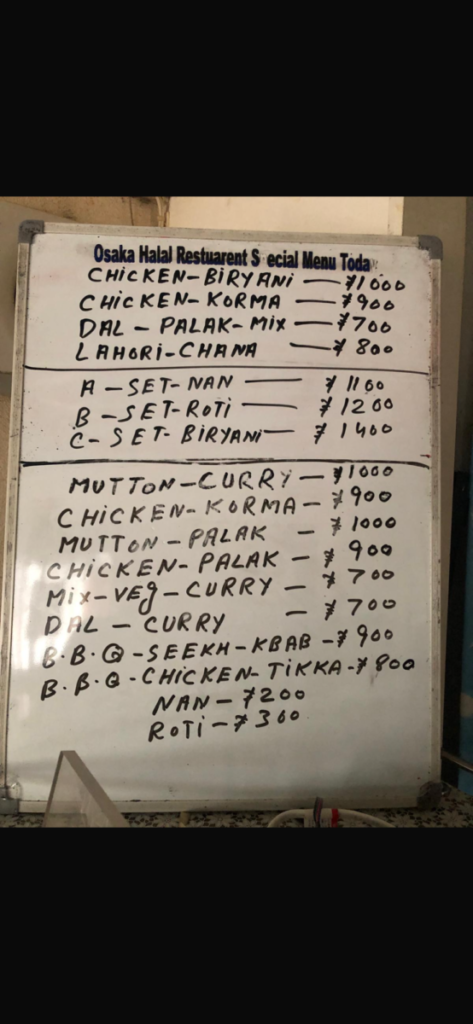 Osaka Halal Restuarent S ecial Menu Toda
CHiCKEN-BiRYANi — ¥1000
CHiCKEN-KORMA — ¥900
DAL - PALAK-Mix — ¥700
LAHORi-CHANA — ¥800
A - SET- NAN — ¥1100
B - SET-ROTi — ¥1200
C- SET- BiRYANi — ¥1400
MUTTON-CURRY - ¥1000
CHiCKEN-KORMA - ¥900
MUTTON - PALAK - ¥1000
CHiCKEN- PALAK - ¥900
Mix-VEg-CURRY - ¥700
DAL - CURRY - ¥700
B.B.Q-SEEKH-KBAB-¥900
B.B.Q-CHiCKEN-TiKKA-¥800
NAN-¥200
ROTi-¥300